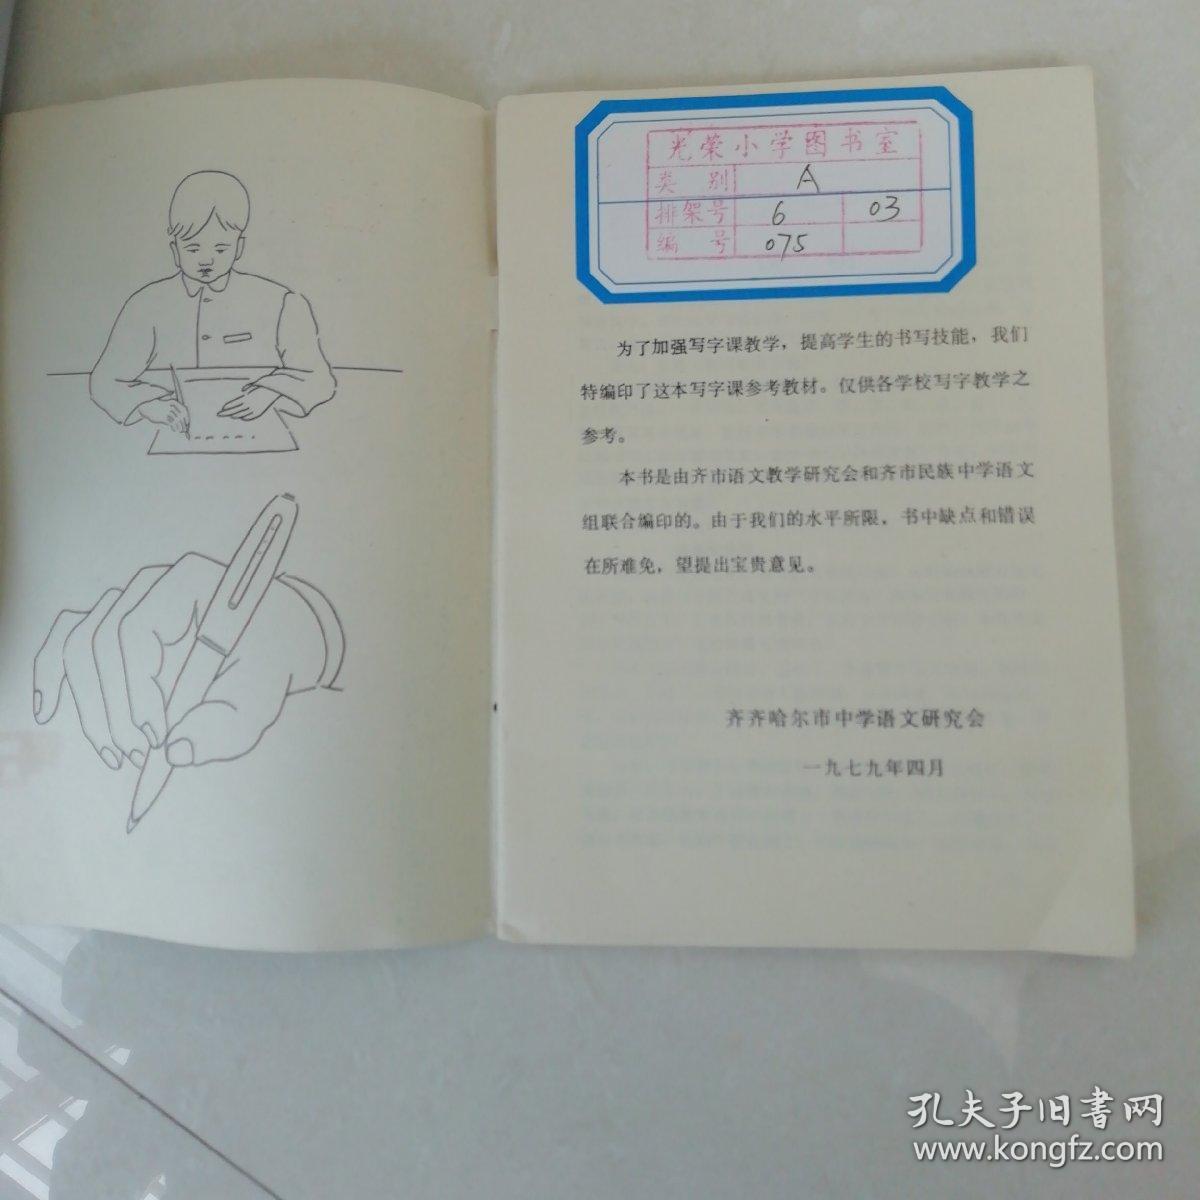 光荣小学图书室
类别 A
排架号 6 03
编号 075
为了加强写字课教学，提高学生的书写技能，我们
特编印了这本写字课参考教材。仅供各学校写字教学之
参考。
本书是由齐市语文教学研究会和齐市民族中学语文
组联合编印的。由于我们的水平所限，书中缺点和错误
在所难免，望提出宝贵意见。
齐齐哈尔市中学语文研究会
一九七九年四月
孔夫子旧书网
www.kongfz.com